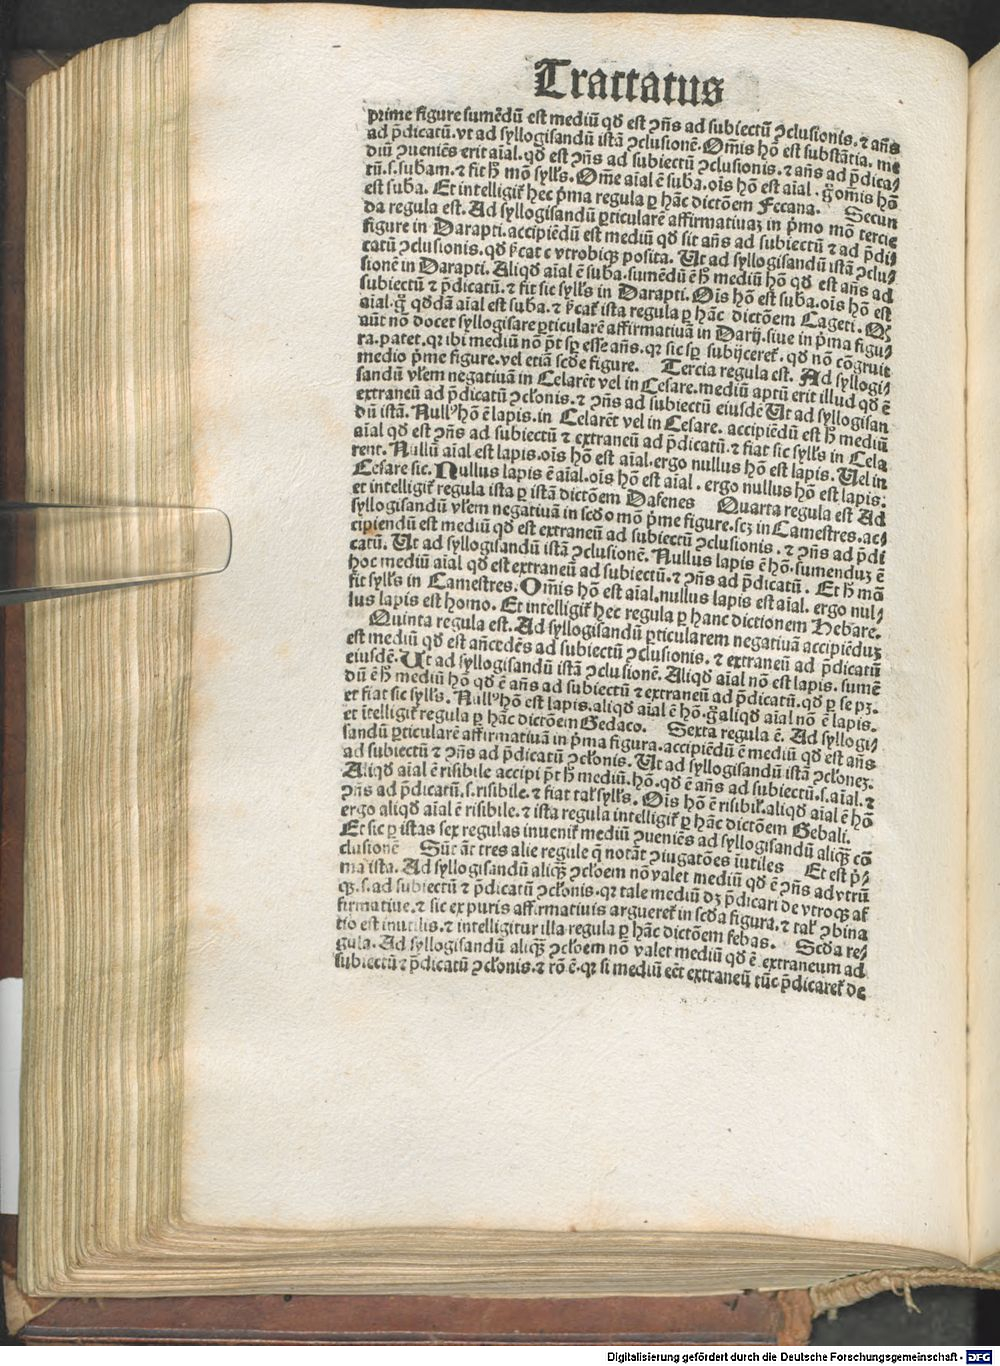 Tractatus
prime figure sumẽdũ est mediũ qđ est ꝯñs ad subiectũ ꝯclusionis. ⁊ añs
ad p̃dicatũ. vt ad syllogisandũ istã ꝯclusionẽ. Om̃is hõ est substãtia. me
diũ ꝯueniẽs erit aĩal. qđ est ꝯñs ad subiectũ ꝯclusionis. ⁊ añs ad p̃dica/
tũ. s. subam. ⁊ fit h̃ mõ syłłs. Om̃e aĩal ẽ suba. oĩs hõ est aĩal. g̊ om̃is hõ
est suba. Et intelligit̃ hec p̃ma regula ꝑ hãc dictõem Fecana. Secun
da regula est. Ad syllogisandũ ꝑticularẽ affirmatiuaꝫ in p̃mo mõ tercie
figure in Darapti. accipiẽdũ est mediũ qđ sit añs ad subiectũ ⁊ ad p̃di/
catũ ꝯclusionis. qđ p̃cat c vtrobiqꝫ posita. Ut ad syllogisandũ istã ꝯclu/
sionẽ in Darapti. Aliqđ aĩal ẽ suba. sumẽdũ ẽ h̃ mediũ hõ qđ est añs ad
subiectũ ⁊ p̃dicatũ. ⁊ fit sic syłłs in Darapti. Oĩs hõ est suba. oĩs hõ est
aĩal. g̊ qđdã aĩal est suba. ⁊ p̃cat̃ ista regula ꝑ hãc dictõem Cageti. Qꝫ
aũt nõ docet syllogisare ꝑticularẽ affirmatiuã in Darij. siue in p̃ma figu/
ra. patet. qꝛ ibi mediũ nõ p̃t sꝑ esse añs. qꝛ sic sꝑ subijceret̃. qđ nõ cõgruit
medio p̃me figure. vel etiã scđe figure. Tercia regula est. Ad syllogi/
sandũ vłem negatiuã in Celarẽt vel in Cesare. mediũ aptũ erit illud qđ ẽ
extraneũ ad p̃dicatũ ꝯcłonis. ⁊ ꝯñs ad subiectũ eiusdẽ Ut ad syllogisan
dũ istã. Null⁹ hõ ẽ lapis. in Celarẽt vel in Cesare. accipiẽdũ est h̃ mediũ
aĩal qđ est ꝯñs ad subiectũ ⁊ extraneũ ad p̃dicatũ. ⁊ fiat sic syłłs in Cela
rent. Nullũ aĩal est lapis. oĩs hõ est aĩal. ergo nullus hõ est lapis. Uel in
Cesare sic. Nullus lapis ẽ aĩal. oĩs hõ est aĩal. ergo nullus hõ est lapis.
et intelligit̃ regula ista ꝑ istã dictõem Dafenes Quarta regula est Ad
syllogisandũ vłem negatiuã in scđo mõ p̃me figure. scꝫ in Camestres. ac/
cipiendũ est mediũ qđ est extraneũ ad subiectũ ꝯclusionis. ⁊ ꝯñs ad p̃di
catũ. Ut ad syllogisandũ istã ꝯclusionẽ. Nullus lapis ẽ hõ. sumenduꝫ ẽ
hoc mediũ aĩal qđ est extraneũ ad subiectũ. ⁊ ꝯñs ad p̃dicatũ. Et h̃ mõ
fit syłłs in Camestres. Om̃is hõ est aĩal. nullus lapis est aĩal. ergo nul/
lus lapis est homo. Et intelligit̃ hec regula ꝑ hanc dictionem Hebare.
Quinta regula est. Ad syllogisandũ ꝑticularem negatiuã accipiẽduꝫ
est mediũ qđ est añcedẽs ad subiectũ ꝯclusionis. ⁊ extraneũ ad p̃dicatũ
eiusdẽ. Ut ad syllogisandũ istã ꝯclusionẽ. Aliqđ aĩal nõ est lapis. sumẽ
dũ ẽ h̃ mediũ hõ qđ ẽ añs ad subiectũ ⁊ extraneũ ad p̃dicatũ. qđ ꝑ se pꝫ.
et fiat sic syłłs. Null⁹ hõ est lapis. aliqđ aĩal ẽ hõ. g̊ aliqđ aĩal nõ ẽ lapis.
et ĩtelligit̃ regula ꝑ hãc dictõem Gedaco. Sexta regula ẽ. Ad syllogi/
sandũ ꝑticularẽ affirmatiuã in p̃ma figura. accipiẽdũ ẽ mediũ qđ est añs
ad subiectũ ⁊ ꝯñs ad p̃dicatũ ꝯcłonis. Ut ad syllogisandũ istã ꝯcłoneꝫ.
Aliqđ aĩal ẽ risibile accipi p̃t h̃ mediũ. hõ. qđ ẽ añs ad subiectũ. s. aĩal. ⁊
ꝯñs ad p̃dicatũ. s. risibile. ⁊ fiat tał syłłs. Oĩs hõ ẽ risibił. aliqđ aĩal ẽ hõ
ergo aliqđ aĩal ẽ risibile. ⁊ ista regula intelligit̃ ꝑ hãc dictõem Gebali.
Et sic ꝑ istas sex regulas inuenit̃ mediũ ꝯueniẽs ad syllogisandũ aliqꝫ cõ
clusionẽ Sũt ãt tres alie regule q̃ notãt ꝯiugatões ĩutiles Et est p̃/
ma ista. Ad syllogisandũ aliqꝫ ꝯcłoem nõ valet mediũ qđ ẽ ꝯñs ad vtrũ
qꝫ. s. ad subiectũ ⁊ p̃dicatũ ꝯcłonis. qꝛ tale mediũ dꝫ p̃dicari de vtroqꝫ af
firmatiue. ⁊ sic ex puris affirmatiuis argueret̃ in scđa figura. ⁊ tał ꝯbina
tio est inutilis. ⁊ intelligitur illa regula ꝑ hãc dictõem febas. Scđa re/
gula. Ad syllogisandũ aliqꝫ ꝯcłoem nõ valet mediũ qđ ẽ extraneum ad
subiectũ ⁊ p̃dicatũ ꝯcłonis. ⁊ rõ ẽ. qꝛ si mediũ eẽt extraneũ tũc p̃dicaret̃ de
Digitalisierung gefördert durch die Deutsche Forschungsgemeinschaft - DFG